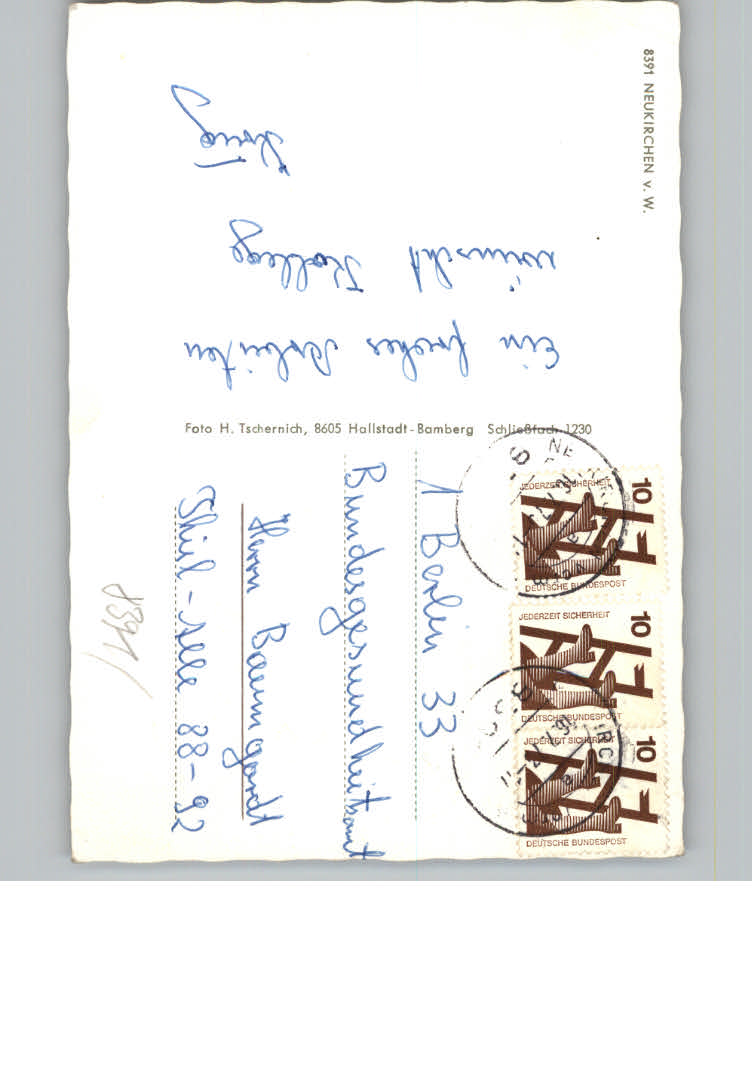 8391 NEUKIRCHEN v. W.
Ein frohes Arbeiten
wünscht Kollege
Foto H. Tschernich, 8605 Hallstadt-Bamberg Schließfach 1230
10
JEDERZEIT SICHERHEIT
DEUTSCHE BUNDESPOST
10
JEDERZEIT SICHERHEIT
DEUTSCHE BUNDESPOST
10
JEDERZEIT SICHERHEIT
DEUTSCHE BUNDESPOST
1 Berlin 33
Bundesgesundheitsamt
Herrn Baumgardt
Thiel-Allee 88-92
8391